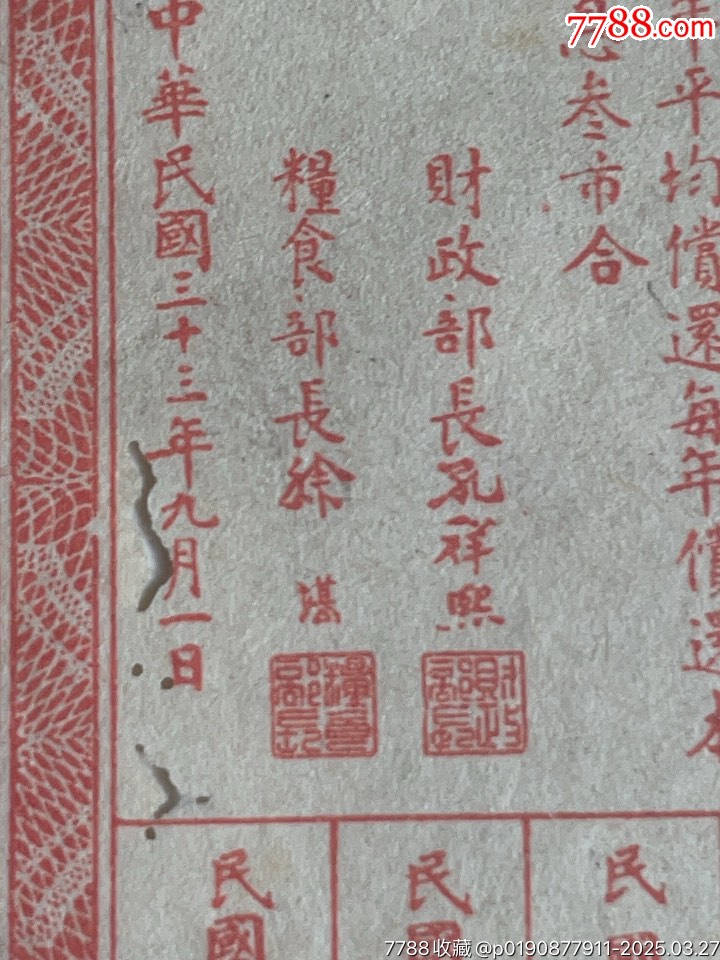 7788.com
年平均償還每年償還本
息叁市合
財政部長孔祥熙
財政部長
糧食部長徐堪
糧食部長
中華民國三十三年九月一日
民
民國
民國
7788收藏@p0190877911-2025.03.27